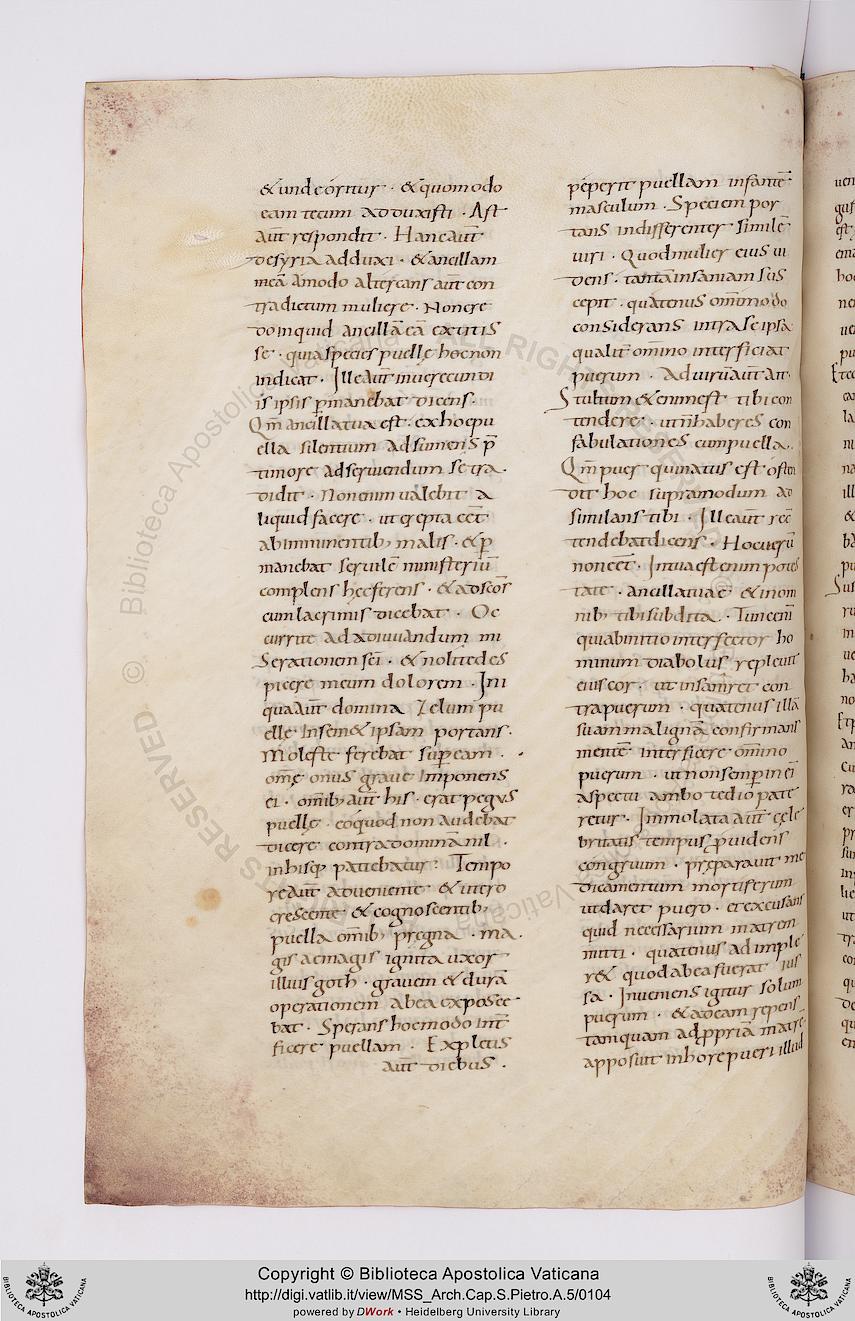 &unde oritur · &quomodo
eam tecum adduxisti · Ast
aut̄ respondit · Hancaut̄
desyria adduxi · &ancillam
meā Amodo altercans aut̄ con
tradictum muliere · Non cre
do inquid ancillā eā extitis
se · quia species puellę hoc non
indicat · Ille aut̄ inuerecundi
is ipsis ꝑmanebat dicens ·
Qm̄ ancilla tua est · ex hoc pu
ella silentium adsumens p̄
timore adseruiendum se tra ·
didit · Non enim ualebit a
liquid facere · ut erepta eēt
ab imminentib; malis · &ꝑ
manebat seruile ministeriū
complens hęc ferens · &ad scōs
cum lacrimis dicebat · Oc
currite ad adiuuandum mi
serationem sc̄i · &nolite des
picere meum dolorem · Ini
qua aut̄ domina zelum pu
ellę insem&ipsam portans ·
Moleste ferebat sup eam ·
om̄e onus graue imponens
ei · om̄ib; aut̄ his · erat pegus
puellę · eo quod non audebat
dicere contra dominam nil ·
in hisq; patiebatur : Tempo
re aut̄ adueniente · &utero
crescente &cognoscentib;
puella om̄ib; pregna · ma ·
gis ac magis ignita uxor
illius goth · grauem &durā
operationem ab ea exposce
bat · Sperans hoc modo int̄
ficere puellam · Expletis
aut̄ diebus ·
peperit puellam infantē
masculum · Speciem por
tans indifferenter similē
uiri · Quod mulier eius ui
dens · tanta insaniam sus
cepit · quatenus om̄modo
considerans intra se ipsā
qualit̄ om̄ino interficiat
puerum · Ad uirū aut̄ ait ·
Stultum &enim est tibi con
tendere · ut n̄ haberes con
fabulationes cum puella ·
Qm̄ puer qui natus est osten
dit hoc supra modum ad
similans tibi · Ille aut̄
tendebat dicens · Hoc uerū
non eēt · In tua est enim potes
tate · ancilla tua e &in om
nib; tibi subdita · Tunc eni
qui ab initio interfector ho
minum diabolus repleuit
eius cor · ut insaniret con
tra puerum · quatenus illā
suam malignā confirmans
mentē interficere om̄ino
puerum · ut non semper in ei
aspectu ambo tedio pate
retur · Immolata aut̄ cele
britatis tempus ꝓuidens
congruum · pręparauit me
dicamentum mortiferum
ut daret puero · et excusans
quid necessarium matrem
mitti · quatenus ad imple
r& quod ab ea fuerat ius
sa · Inueniens igitur solum
puerum · &ad eam repens
tamquam ad ꝓpriā matre
apposuit in hore pueri illud